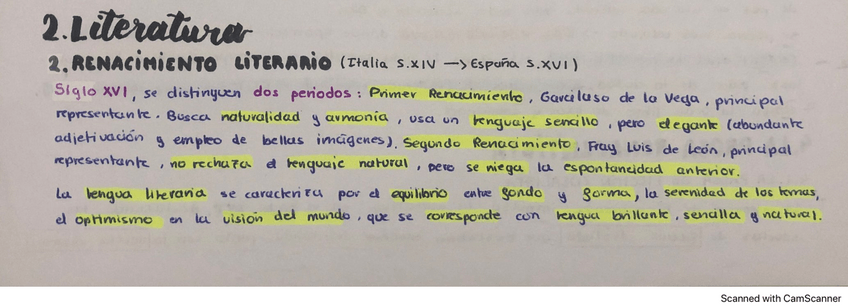 2. Literatura
2. RENACIMIENTO LITERARIO (Italia S.XIV → España S.XVI)
Siglo XVI, se distinguen dos periodos: Primer Renacimiento, Garcilaso de la Vega, principal
representante. Busca naturalidad y armonía, usa un lenguaje sencillo, pero elegante (abundante
adjetivación y empleo de bellas imágenes). Segundo Renacimiento, Fray Luis de León, principal
representante, no rechaza el lenguaje natural, pero se niega la espontaneidad anterior.
La lengua literaria se caracteriza por el equilibrio entre fondo y forma, la serenidad de los temas,
el optimismo en la visión del mundo, que se corresponde con lengua brillante, sencilla y natural.
Scanned with CamScanner